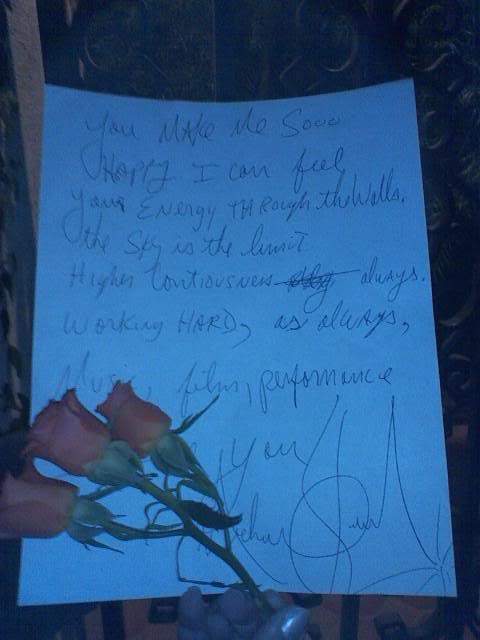 You Make Me Sooo
Happy I can feel
Your Energy THRough the Walls.
the Sky is the limit
Higher Contiousness always.
Working HARD, as always,
Music, film, performance
You